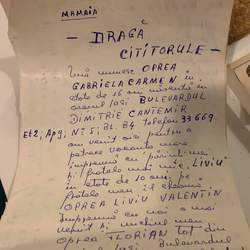 MAMAIA
- DRAGĂ
CITITORULE -
Mă numesc OPREA
GABRIELA CARMEN în
etate de 16 ani născută în
orașul Iași BULEVARDUL
DIMITRIE CANTEMIR
Et 2, Ap 9, Nr 5, BL. B4 Telefon 33669
am venit aici pentru a
petrece vacanța mare
împreună cu părinții mei
și fratele meu mic "LIVIU"
în etate de 10 ani, pe
fratele meu îl cheamă
OPREA LIVIU VALENTIN
Împreună cu noi a mai
venit și
OPREA FLORIAN tot din
Iași Bulevardul